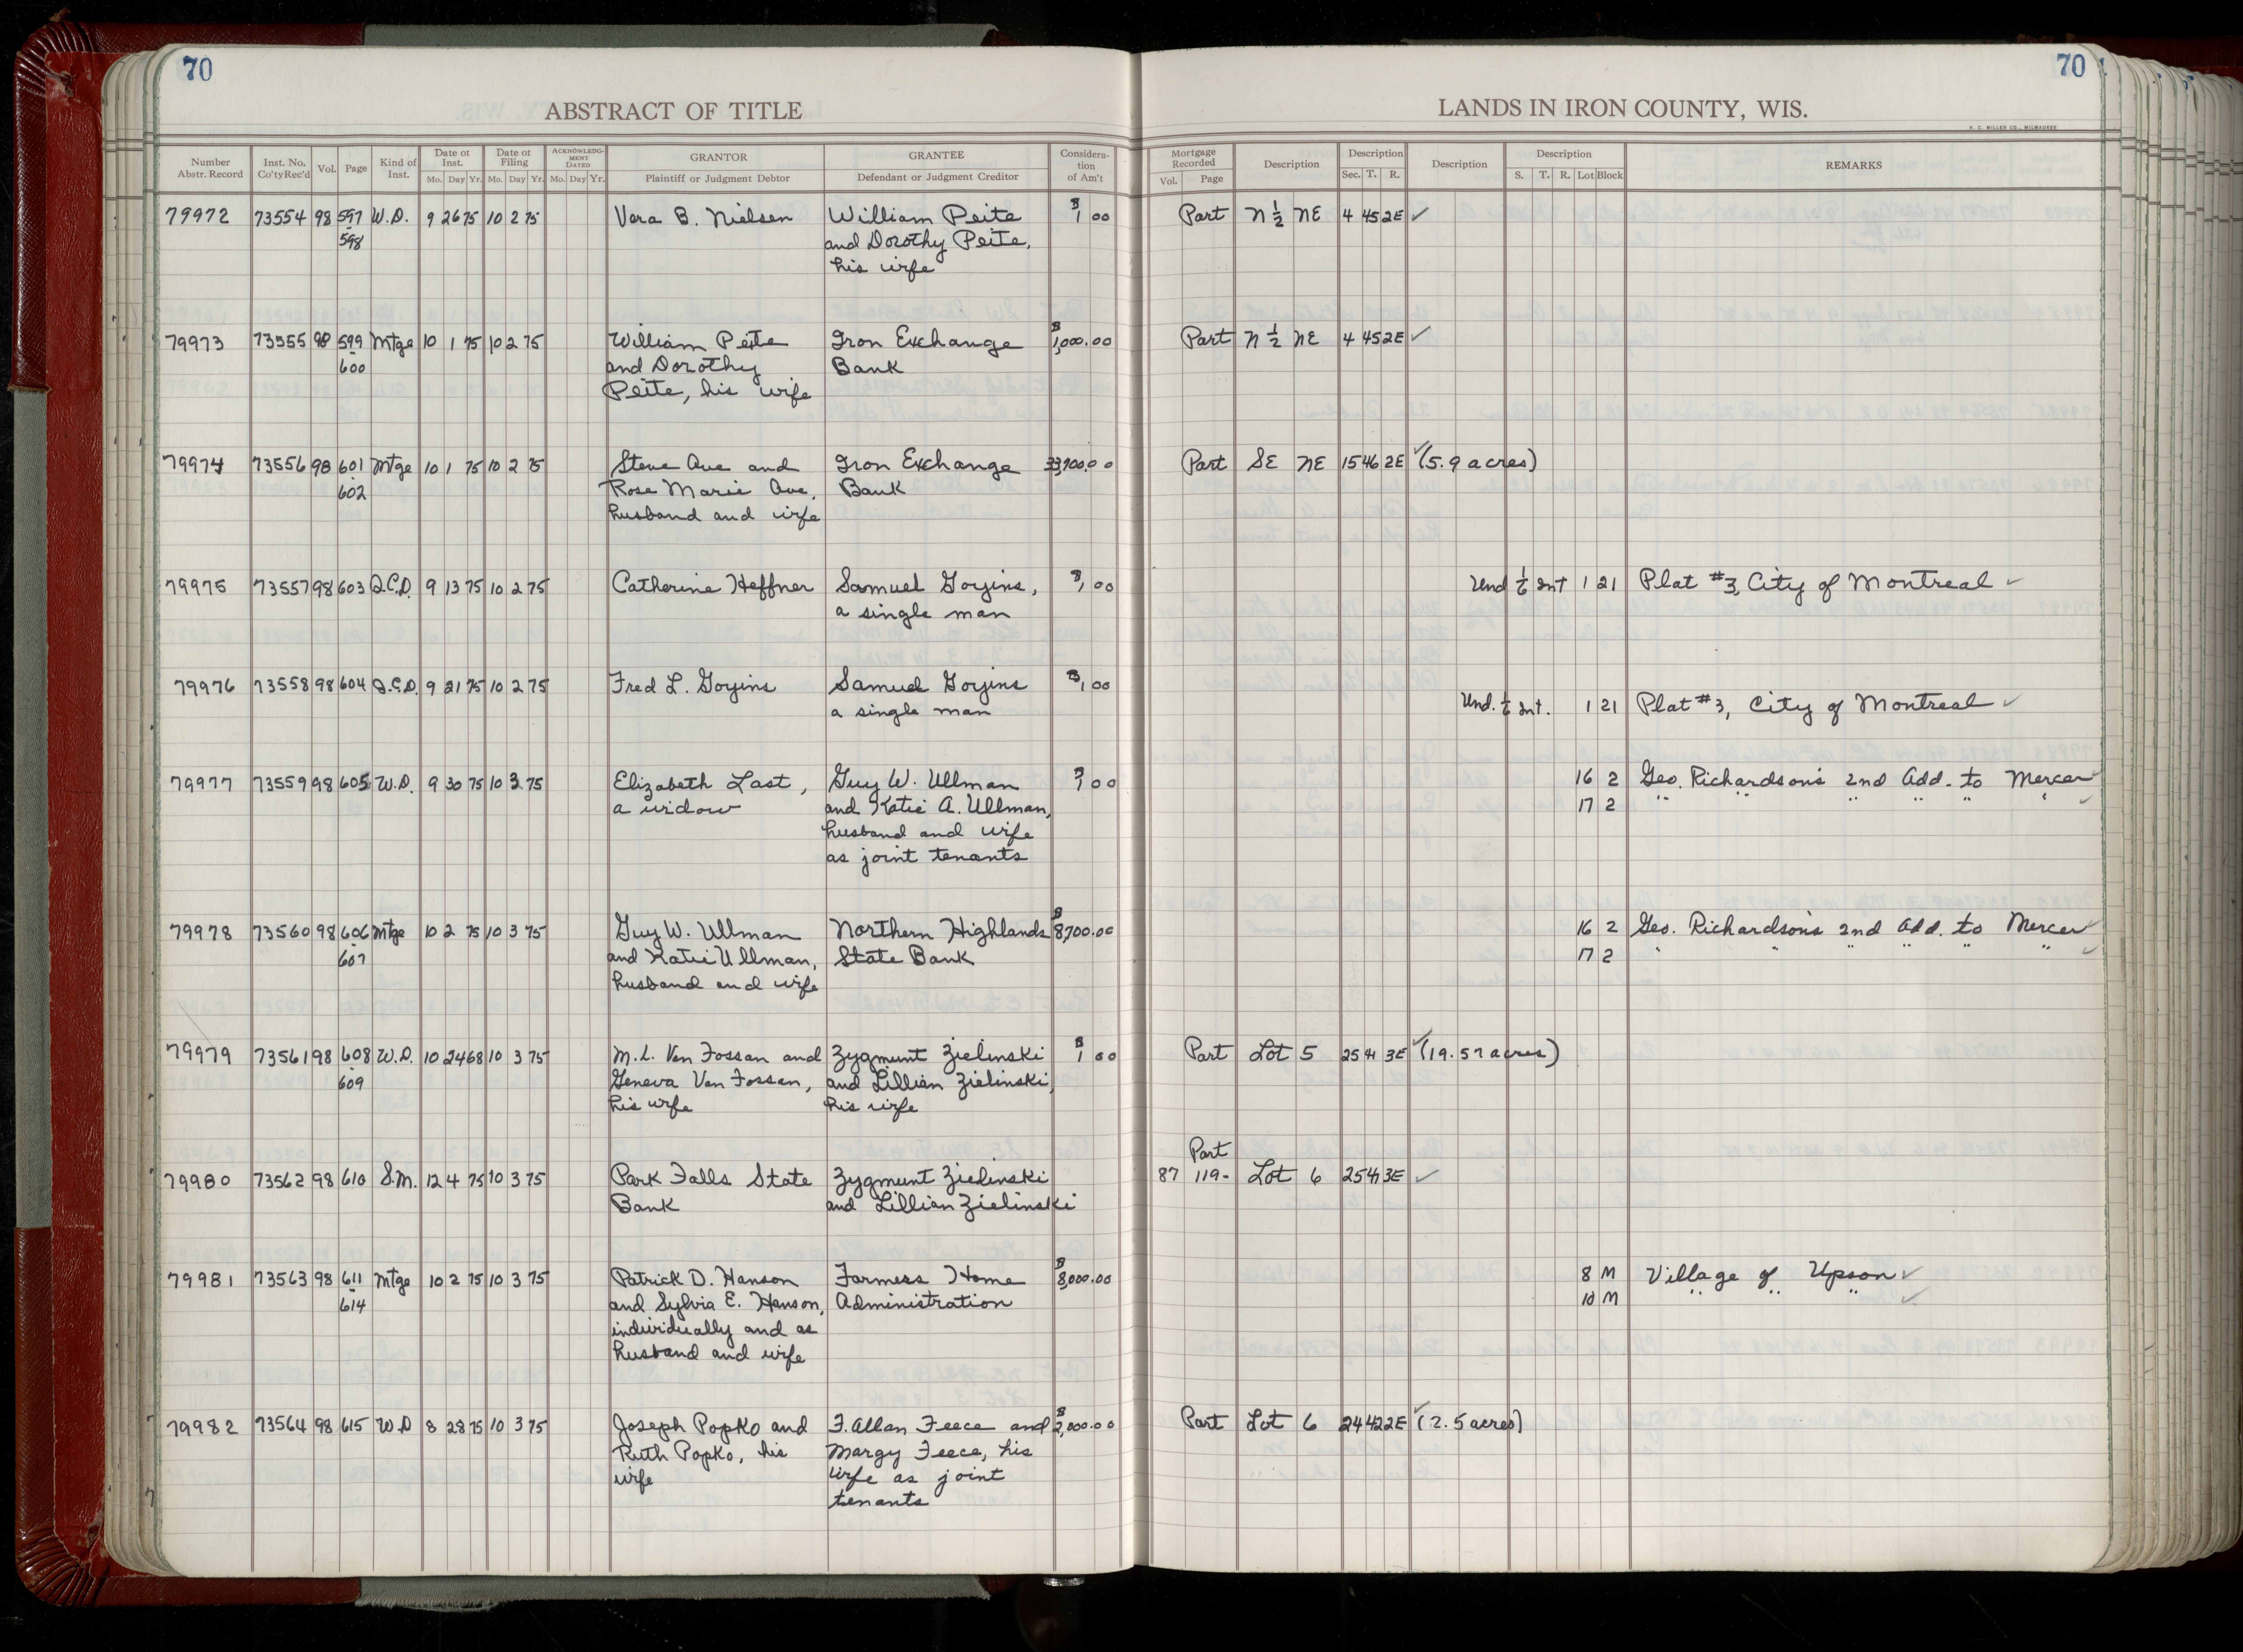 70
70
ABSTRACT OF TITLE
LANDS IN IRON COUNTY, WIS.
H. C. MILLER CO., MILWAUKEE
Number Abstr. Record Inst. No. Co'ty Rec'd Vol. Page Kind of Inst. Date of Inst. Mo. Day Yr. Date of Filing Mo. Day Yr. ACKNOWLEDGMENT DATED Mo. Day Yr. GRANTOR Plaintiff or Judgment Debtor GRANTEE Defendant or Judgment Creditor Consideration of Am't Mortgage Recorded Vol. Page Description Description Sec. T. R. Description Description S. T. R. Lot Block REMARKS
79972 73554 98 597 W.D. 9 26 75 10 2 75 Vera B. Nielsen William Peite $1 00 Part N 1/2 NE 4 45 2E ✓
- 598 and Dorothy Peite,
his wife
79973 73555 98 599 Mtge 10 1 75 10 2 75 William Peite Iron Exchange $1,000.00 Part N 1/2 NE 4 45 2E ✓
- 600 and Dorothy Bank
Peite, his wife
79974 73556 98 601 Mtge 10 1 75 10 2 75 Steve Ave and Iron Exchange 33,900.00 Part SE NE 15 46 2E ✓ (5.9 acres)
- 602 Rose Marie Ave, Bank
husband and wife
79975 73557 98 603 Q.C.D. 9 13 75 10 2 75 Catherine Heffner Samuel Goyins, $1,00 Und 1/6 Int 1 21 Plat #3, City of Montreal ✓
a single man
79976 73558 98 604 Q.C.D. 9 21 75 10 2 75 Fred L. Goyins Samuel Goyins $1,00
a single man Und. 1/6 Int. 1 21 Plat #3, City of Montreal ✓
79977 73559 98 605 W.D. 9 30 75 10 3 75 Elizabeth Last, Guy W. Ullman $1 00 16 2 Geo. Richardson's 2nd Add. to Mercer ✓
a widow and Katie A. Ullman, 17 2 " " " " " " ✓
husband and wife
as joint tenants
79978 73560 98 606 Mtge 10 2 75 10 3 75 Guy W. Ullman Northern Highlands $8,700.00 16 2 Geo. Richardson's 2nd Add. to Mercer ✓
- 607 and Katie Ullman, State Bank 17 2 " " " " " " ✓
husband and wife
79979 73561 98 608 W.D. 10 24 68 10 3 75 M.L. Van Fossan and Zygmunt Zielinski $1 00 Part Lot 5 25 41 3E ✓ (19.57 acres)
- 609 Geneva Van Fossan, and Lillian Zielinski,
his wife his wife
Part
79980 73562 98 610 S.M. 12 4 75 10 3 75 Park Falls State Zygmunt Zielinski 87 119- Lot 6 25 41 3E ✓
Bank and Lillian Zielinski
79981 73563 98 611 Mtge 10 2 75 10 3 75 Patrick D. Hanson Farmers Home $8,000.00 8 M Village of Upson ✓
- 614 and Sylvia E. Hanson, Administration 10 M " " " ✓
individually and as
husband and wife
79982 73564 98 615 W.D 8 28 75 10 3 75 Joseph Popko and F. Allan Feece and $2,000.00 Part Lot 6 24 42 2E ✓ (2.5 acres)
Ruth Popko, his Margy Feece, his
wife wife as joint
tenants